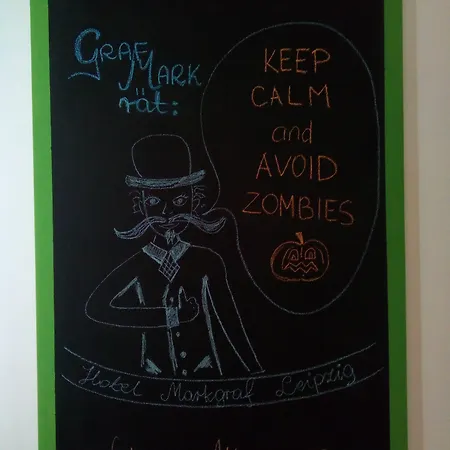 GRAF
MARK
rät:
KEEP
CALM
and
AVOID
ZOMBIES
Hotel Markgraf Leipzig